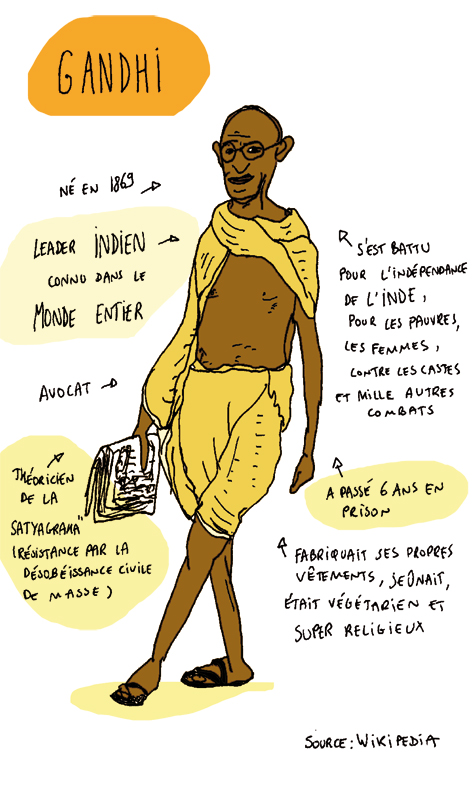 GANDHI
NÉ EN 1869
LEADER INDIEN
CONNU DANS LE
MONDE ENTIER
AVOCAT
THÉORICIEN
DE LA
SATYAGRAHA"
(RÉSISTANCE PAR LA
DÉSOBÉISSANCE CIVILE
DE MASSE)
S'EST BATTU
POUR L'INDÉPENDANCE
DE L'INDE,
POUR LES PAUVRES,
LES FEMMES,
CONTRE LES CASTES
ET MILLE AUTRES
COMBATS
A PASSÉ 6 ANS EN
PRISON
FABRIQUAIT SES PROPRES
VÊTEMENTS, JEÛNAIT,
ÉTAIT VÉGÉTARIEN ET
SUPER RELIGIEUX
SOURCE: WIKIPEDIA